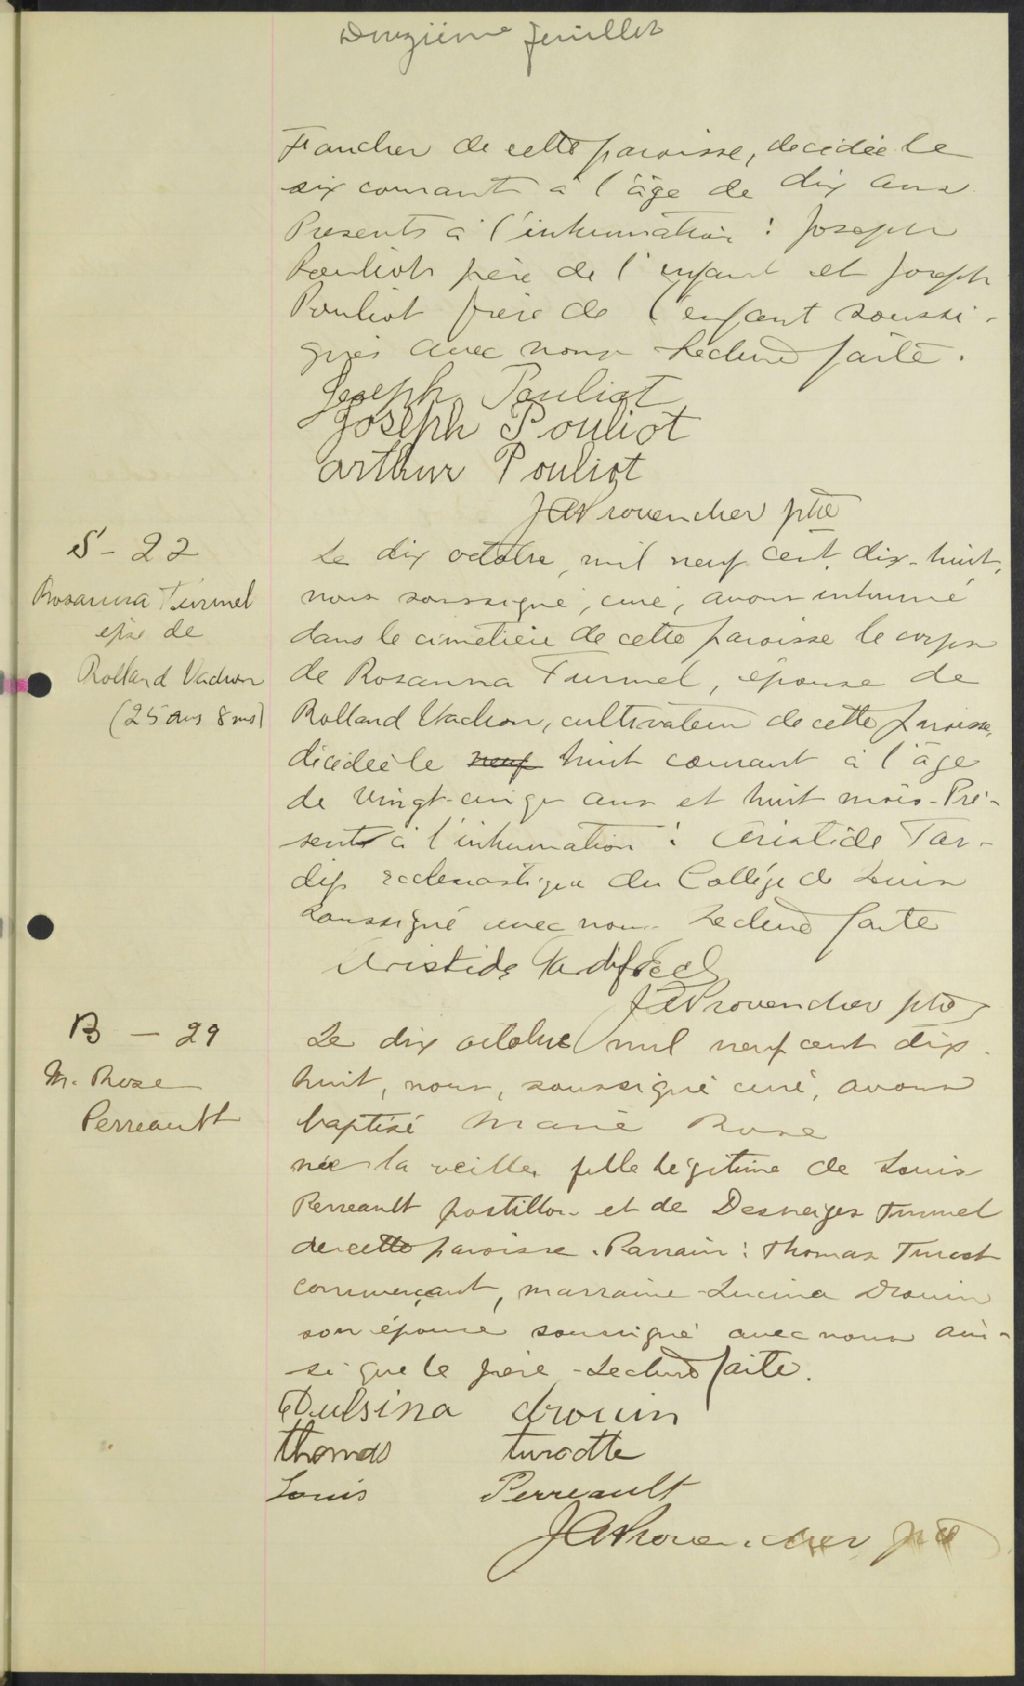 Douzième feuillet
Faucher de cette paroisse, decidée le
six courant à l'âge de dix ans.
Presents à l'inhumation : Joseph
Pouliot père de l'enfant et Joseph
Pouliot frère de l'enfant soussi-
gnés avec nous. Lecture faite.
Joseph Pouliot
Joseph Pouliot
arthur Pouliot
JAProvencher ptre
S - 22
Rosanna Turmel
épse de
Rolland Vachon
(25 ans 8 ms)
Le dix octobre, mil neuf cent dix-huit,
nous soussigné, curé, avons inhumé
dans le cimetière de cette paroisse le corps
de Rosanna Turmel, épouse de
Rolland Vachon, cultivateur de cette paroisse,
décidée le neuf huit courant à l'âge
de vingt-cinq ans et huit mois - Pré-
sent à l'inhumation : Aristide Tar-
dif ecclésiastique du Collège de Lévis
soussigné avec nous. Lecture faite
Aristide Tardif Eccl
JAProvencher ptre
B - 29
M. Rose
Perreault
Le dix octobre mil neuf cent dix-
huit, nous, soussigné curé, avons
baptisé Marie Rose
née la veille, fille légitime de Louis
Perreault postillon et de Desneiges Turmel
de cette paroisse. Parrain : Thomas Turcot
commerçant, marraine Lucina Drouin
son épouse soussigné avec nous ain-
si que le père - Lecture faite.
Dulsina drouin
thomas turcotte
Louis Perreault
JAProvencher ptre